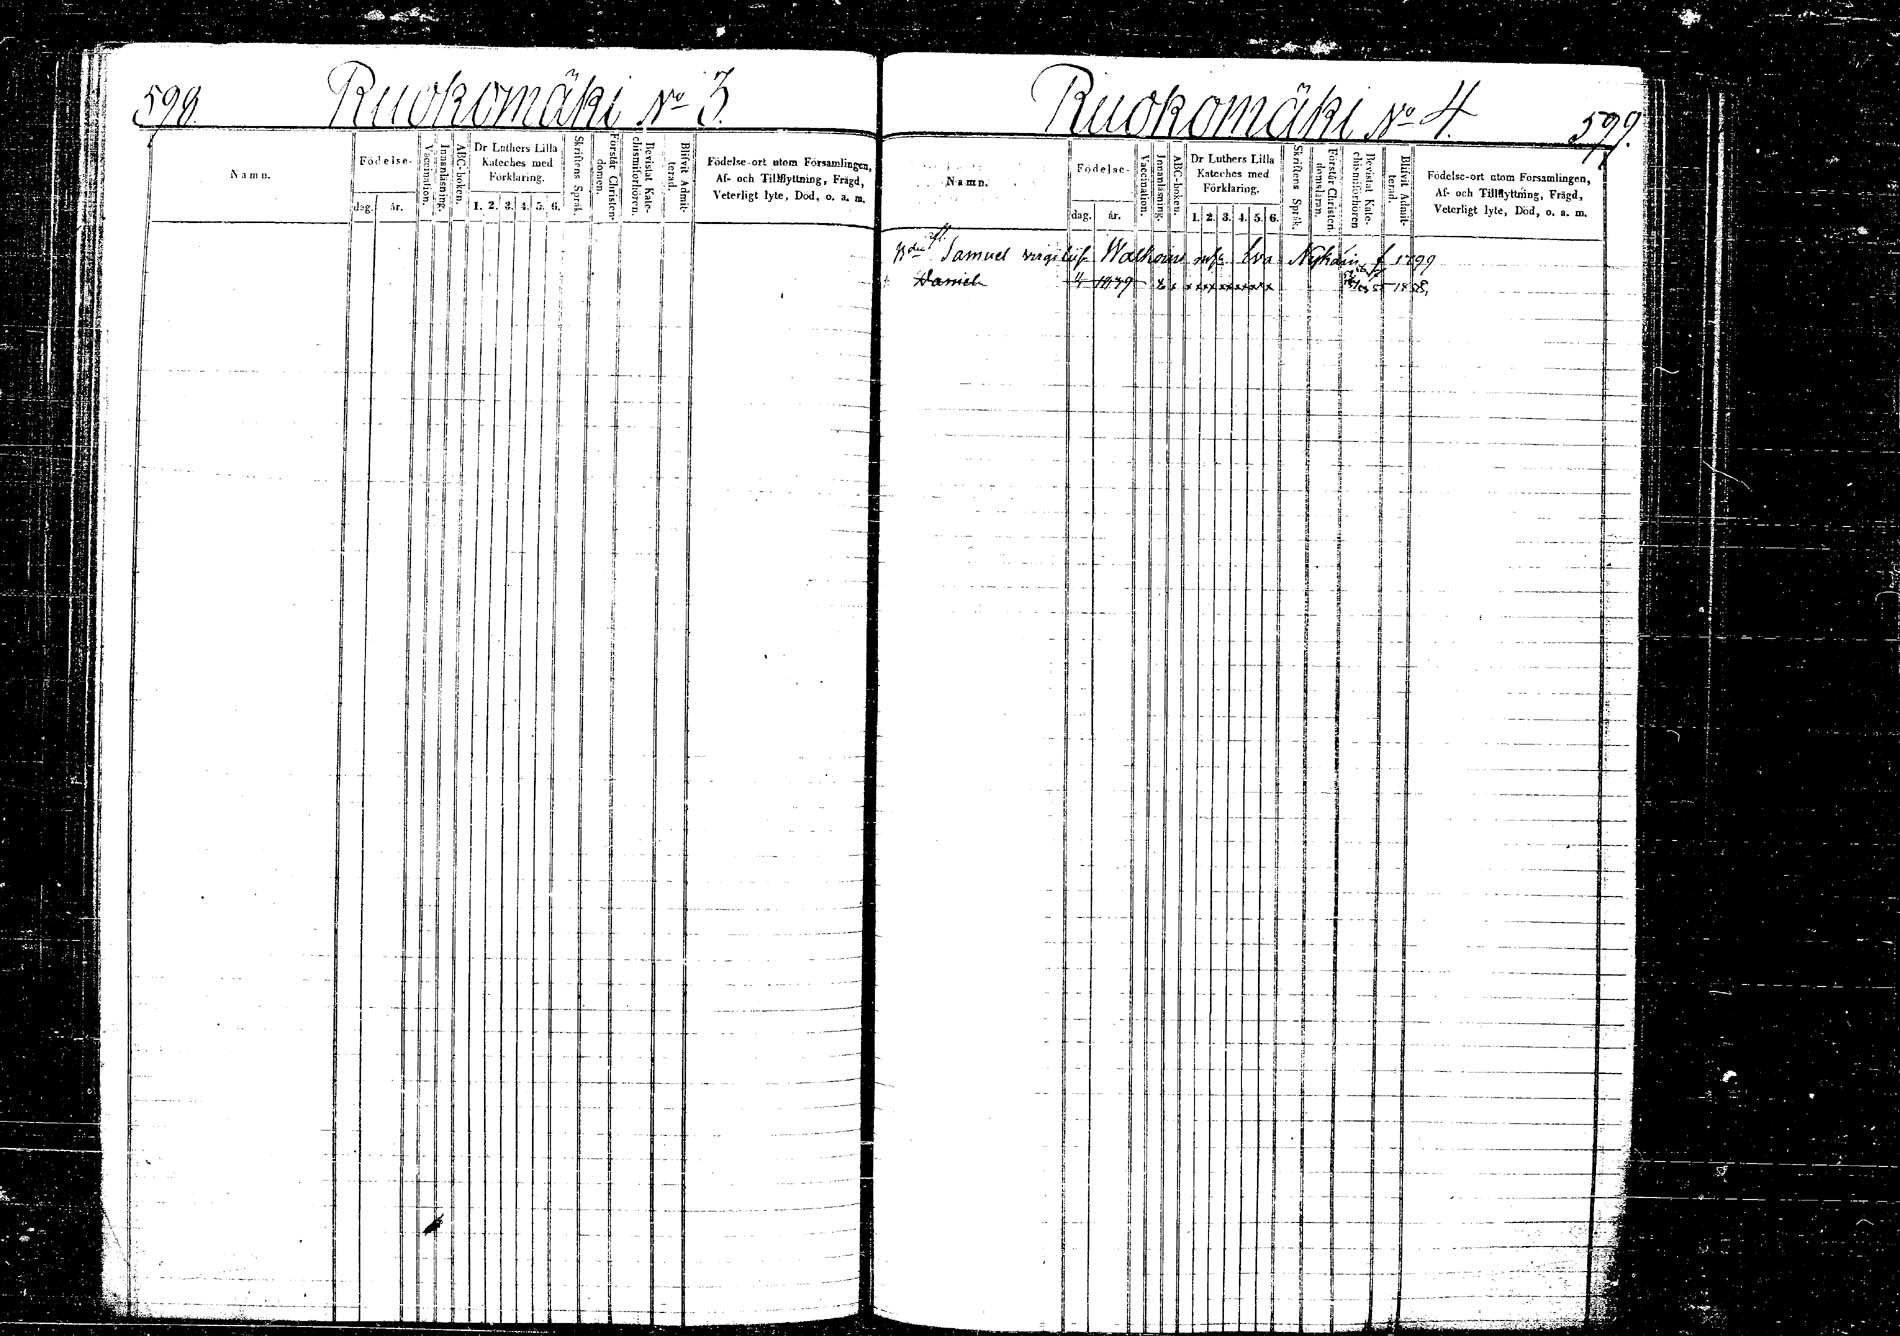 598.
Ruokomäki No 3.
Namn.
Födelse-
dag. år.
Vaccination.
Innanläsning.
ABC-boken.
Dr Luthers Lilla
Kateches med
Förklaring.
1. 2. 3. 4. 5. 6.
Skriftens Språk.
Förstår Christen-
domen.
Bevistat Kate-
chismiförhören.
Blifvit Admit-
terad.
Födelse-ort utom Församlingen,
Af- och Tillflyttning, Frägd,
Veterligt lyte, Död, o. a. m.
Ruokomäki No 4.
599.
Namn.
Födelse-
dag. år.
Vaccination.
Innanläsning.
ABC-boken.
Dr Luthers Lilla
Kateches med
Förklaring.
1. 2. 3. 4. 5. 6.
Skriftens Språk.
Förstår Christen-
domsläran.
Bevistat Kate-
chismiförhören
Blifvit Admit-
terad.
Födelse-ort utom Församlingen,
Af- och Tillflyttning, Frägd,
Veterligt lyte, Död, o. a. m.
Samuel Eva f 1799
Daniel 1839